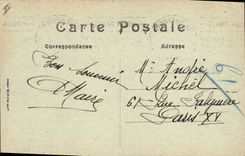 Carte Postale
Correspondance
Adresse
Mr André
Michel
61 Rue Falguière
Paris XV
Bon souvenir
Maire